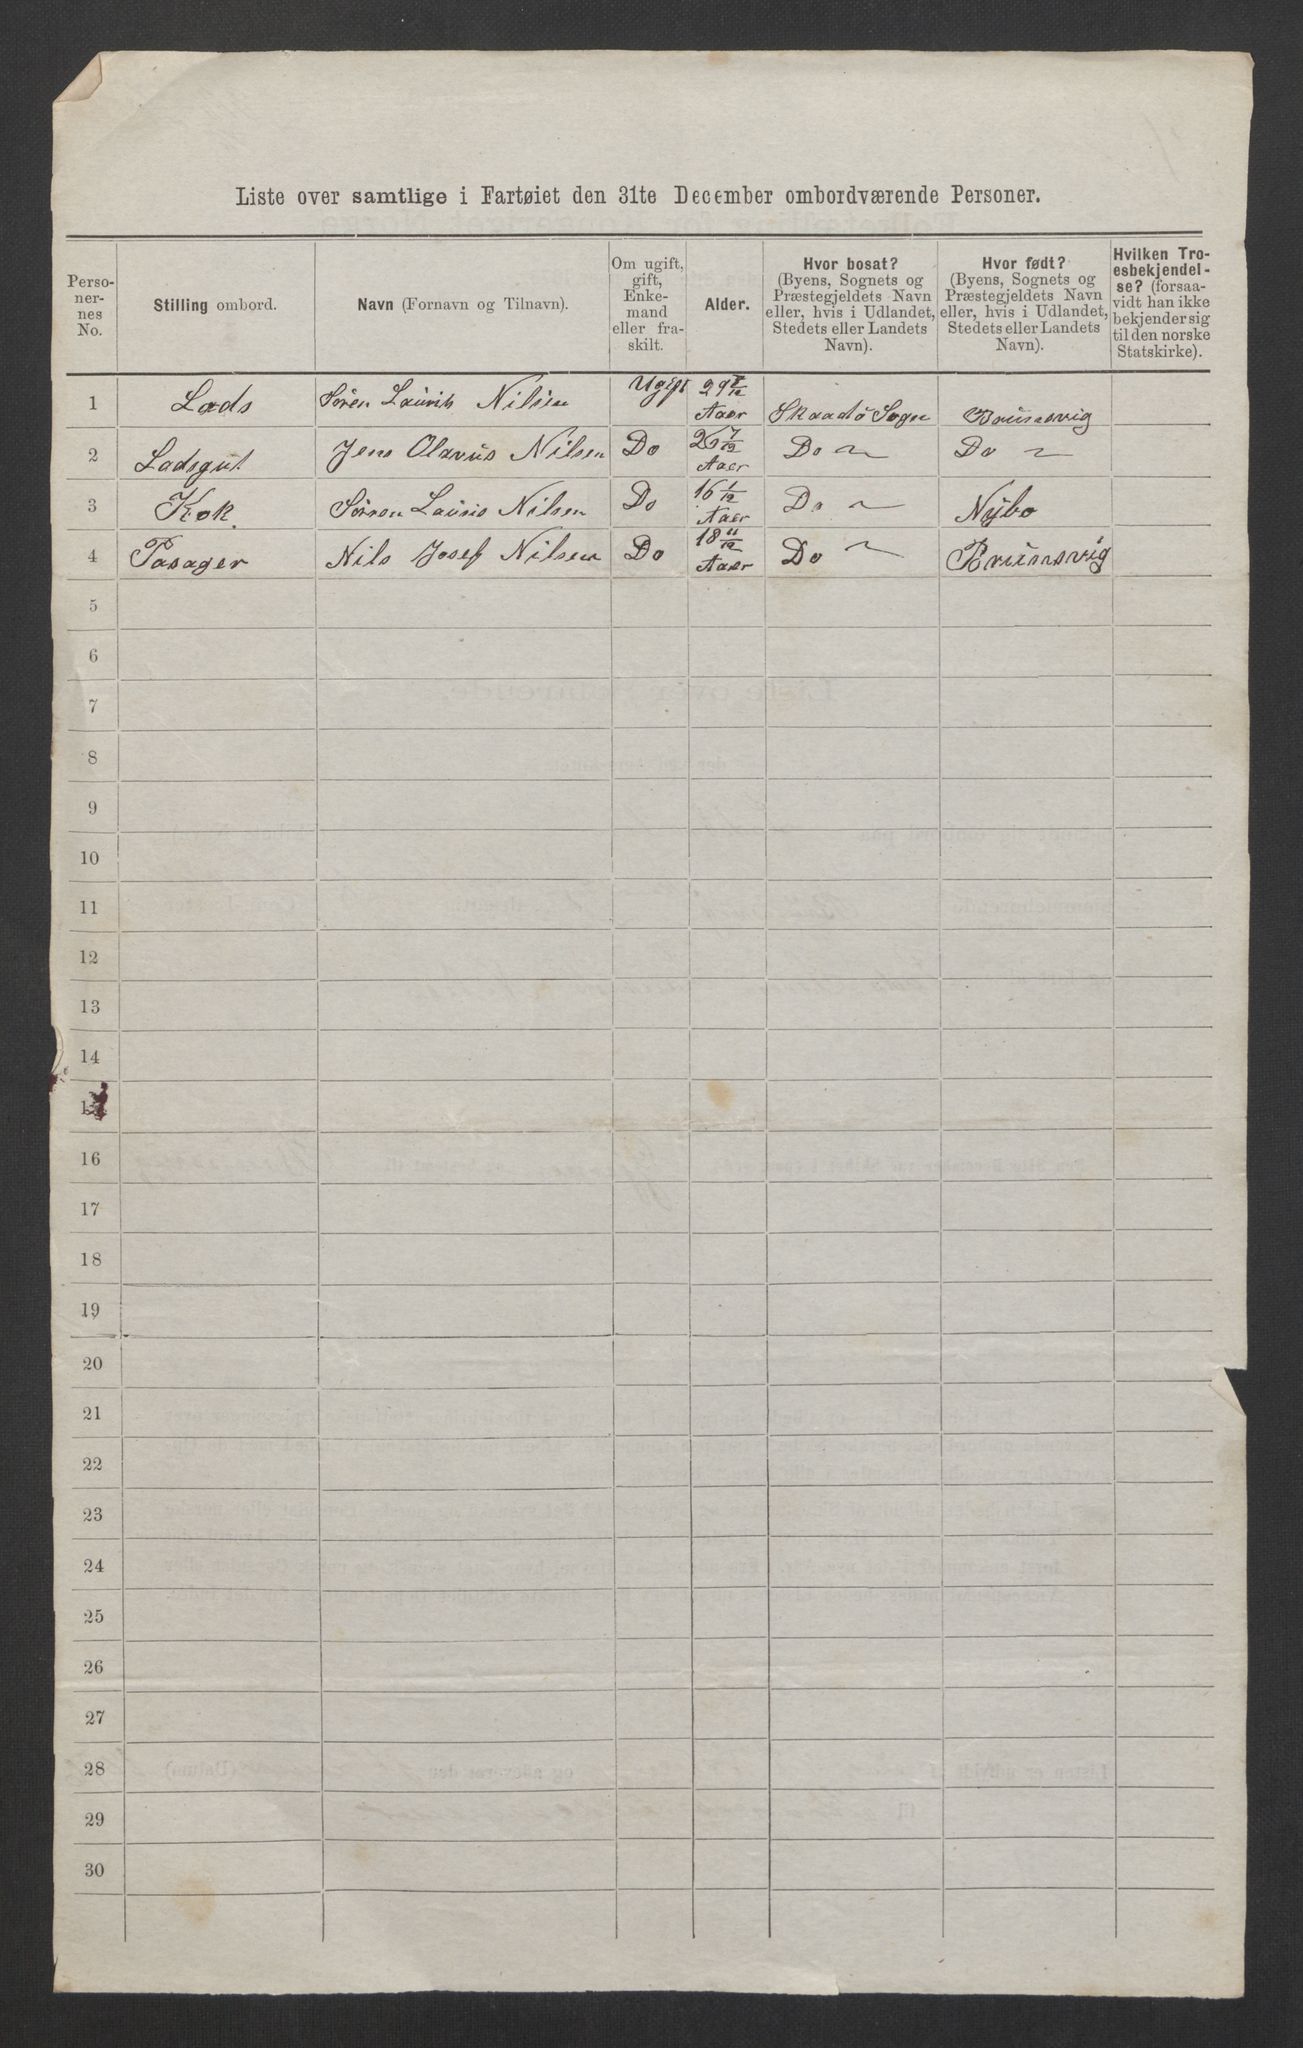 Liste over samtlige i Fartøiet den 31te December ombordværende Personer.
Perso-
ner-
nes
No.
Stilling ombord.
Navn (Fornavn og Tilnavn).
Om ugift,
gift,
Enke-
mand
eller fra-
skilt.
Alder.
Hvor bosat?
(Byens, Sognets og
Præstegjeldets Navn
eller, hvis i Udlandet,
Stedets eller Landets
Navn).
Hvor født?
(Byens, Sognets og
Præstegjeldets Navn
eller, hvis i Udlandet,
Stedets eller Landets
Navn).
Hvilken Tro-
esbekjendel-
se? (forsaa-
vidt han ikke
bekjender sig
til den norske
Statskirke).
1 Lods Sören Lauris Nilsen Ugift 29 Aaer Skaadö Sogn
2 Lodsgut Jens Olavus Nilsen Do 26 7/12 Aaer Do Do
3 Kok. Sörren Lauris Nilsen Do 16 1/12 Aaer Do Nybo
4 Pasager Nils Josef Nilsen Do 18 11/12 Aaer Do Bruinsvig
5
6
7
8
9
10
11
12
13
14
15
16
17
18
19
20
21
22
23
24
25
26
27
28
29
30